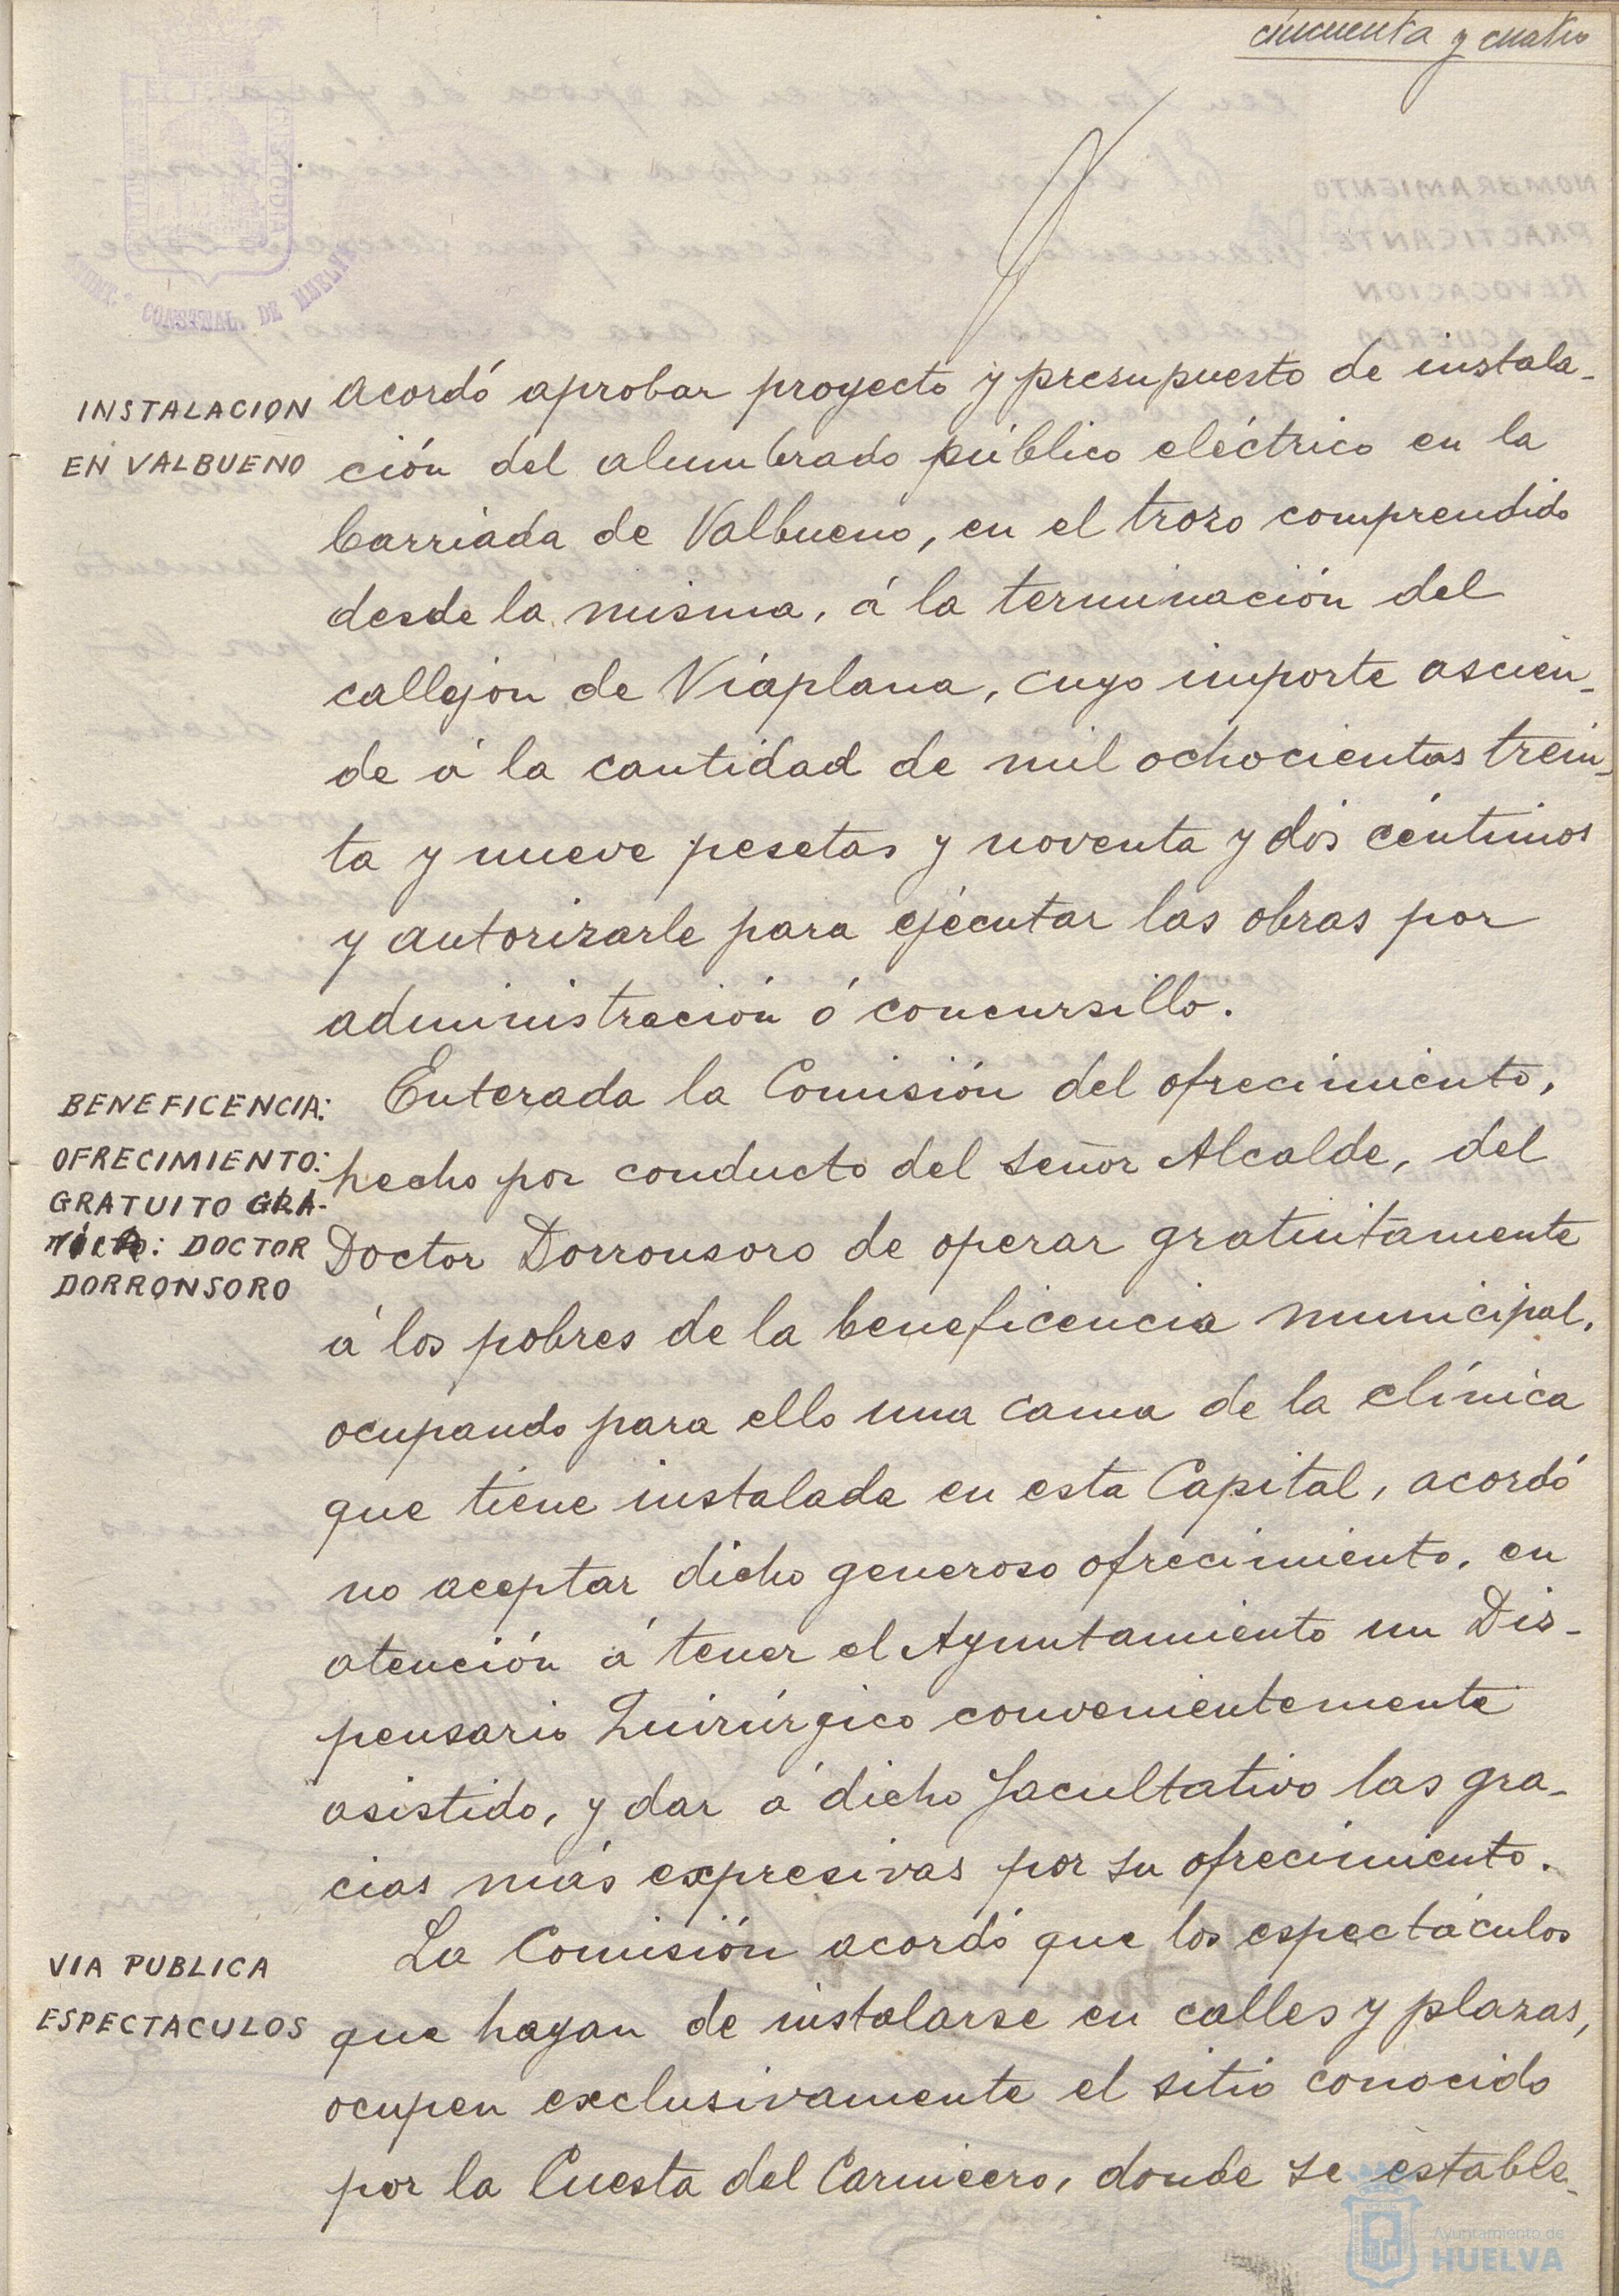 cincuenta y cuatro
AYUNT.º CONSTNAL. DE HUELVA
INSTALACION
EN VALBUENO
acordó aprobar proyecto y presupuesto de instala-
ción del alumbrado público eléctrico en la
barriada de Valbueno, en el trozo comprendido
desde la misma, á la terminación del
callejón de Viaplana, cuyo importe ascien-
de á la cantidad de mil ochocientas trein-
ta y nueve pesetas y noventa y dos céntimos
y autorizarle para ejecutar las obras por
administración ó concursillo.
BENEFICENCIA:
OFRECIMIENTO:
GRATUITO GRA-
: DOCTOR
DORRONSORO
Enterada la Comisión del ofrecimiento,
hecho por conducto del señor Alcalde, del
Doctor Dorronsoro de operar gratuitamente
á los pobres de la beneficencia municipal,
ocupando para ello una cama de la clínica
que tiene instalada en esta Capital, acordó
no aceptar dicho generoso ofrecimiento, en
atención á tener el Ayuntamiento un Dis-
pensario Quirúrgico convenientemente
asistido, y dar á dicho facultativo las gra-
cias más expresivas por su ofrecimiento.
VIA PUBLICA
ESPECTACULOS
La Comisión acordó que los espectáculos
que hayan de instalarse en calles y plazas,
ocupen exclusivamente el sitio conocido
por la Cuesta del Carnicero, donde se estable-
Ayuntamiento de
HUELVA